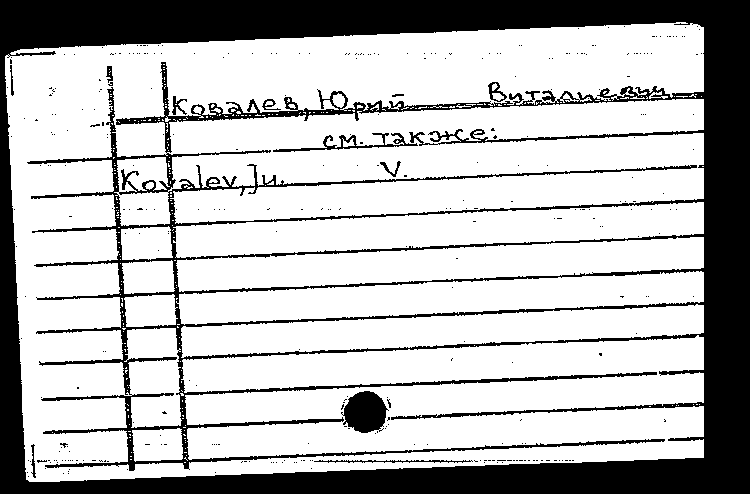 Ковалев, Юрий Виталиевич
см. также:
Kovalev, Ju. V.